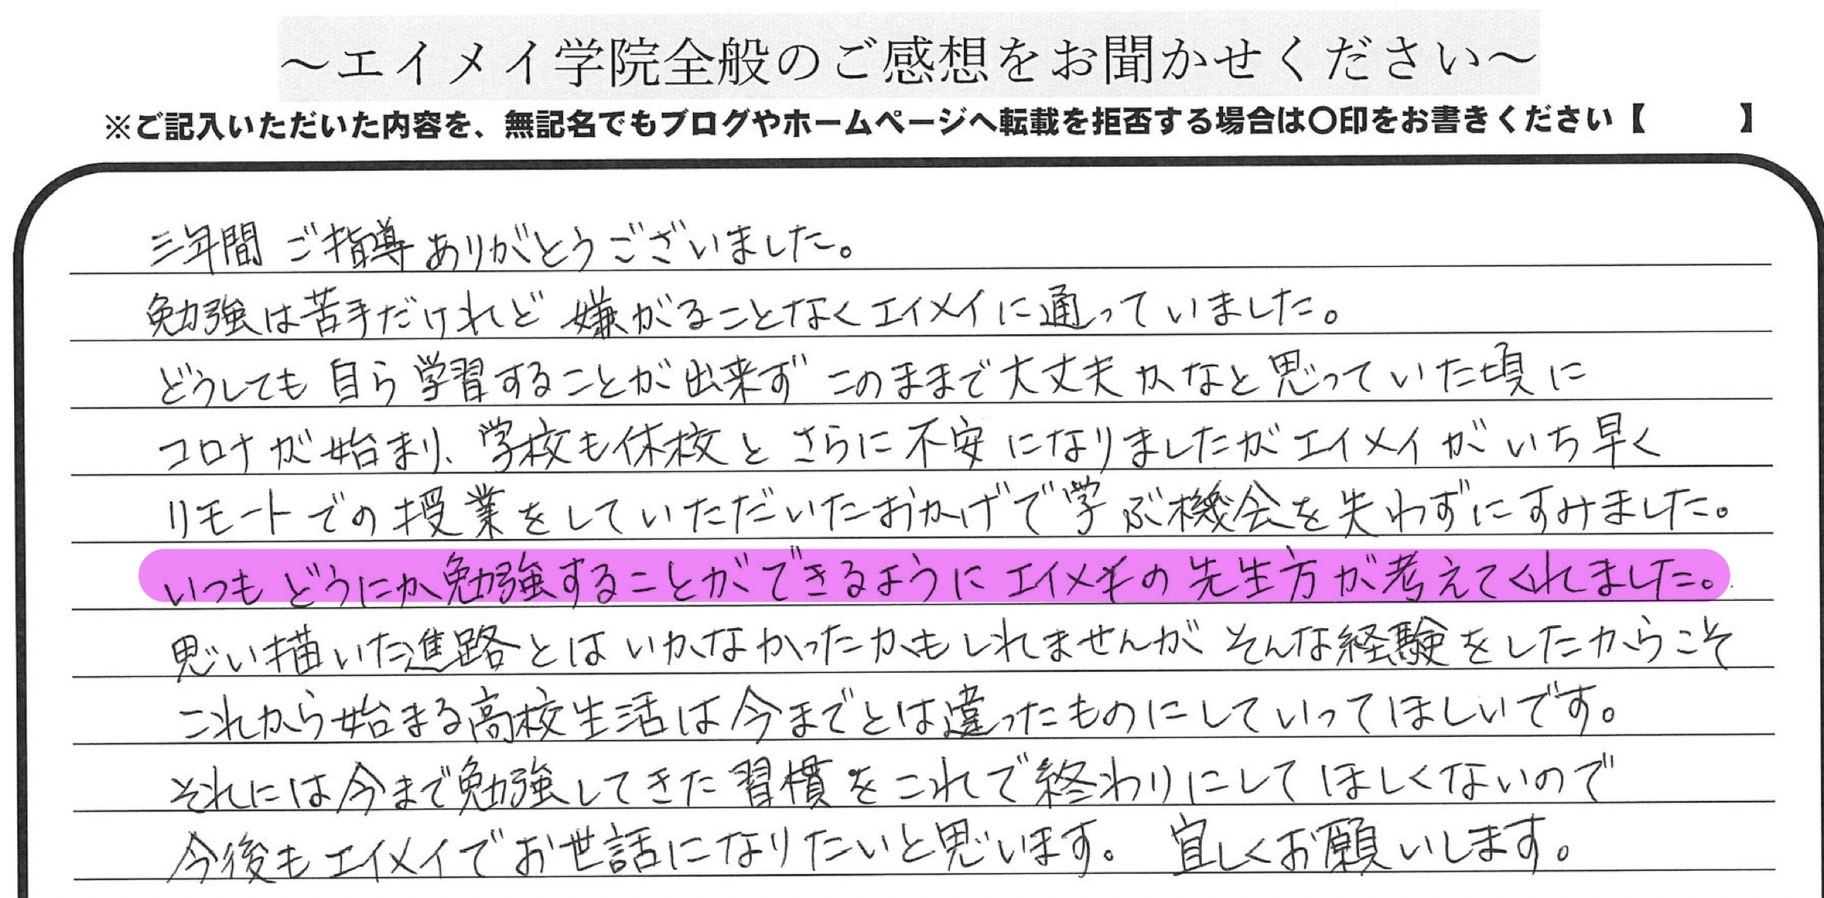 ～エイメイ学院全般のご感想をお聞かせください～
※ご記入いただいた内容を、無記名でもブログやホームページへ転載を拒否する場合は〇印をお書きください【　　　】
三年間 ご指導ありがとうございました。
勉強は苦手だけれど 嫌がることなくエイメイに通っていました。
どうしても 自ら学習することが出来ず このままで大丈夫かなと思っていた頃に
コロナが始まり、学校も休校と さらに不安になりましたがエイメイがいち早く
リモートでの授業をしていただいたおかげで学ぶ機会を失わずにすみました。
いつもどうにか勉強することができるようにエイメイの先生方が考えてくれました。
思い描いた進路とはいかなかったかもしれませんが そんな経験をしたからこそ
これから始まる高校生活は今までとは違ったものにしていってほしいです。
それには今まで勉強してきた習慣をこれで終わりにしてほしくないので
今後もエイメイでお世話になりたいと思います。 宜しくお願いします。